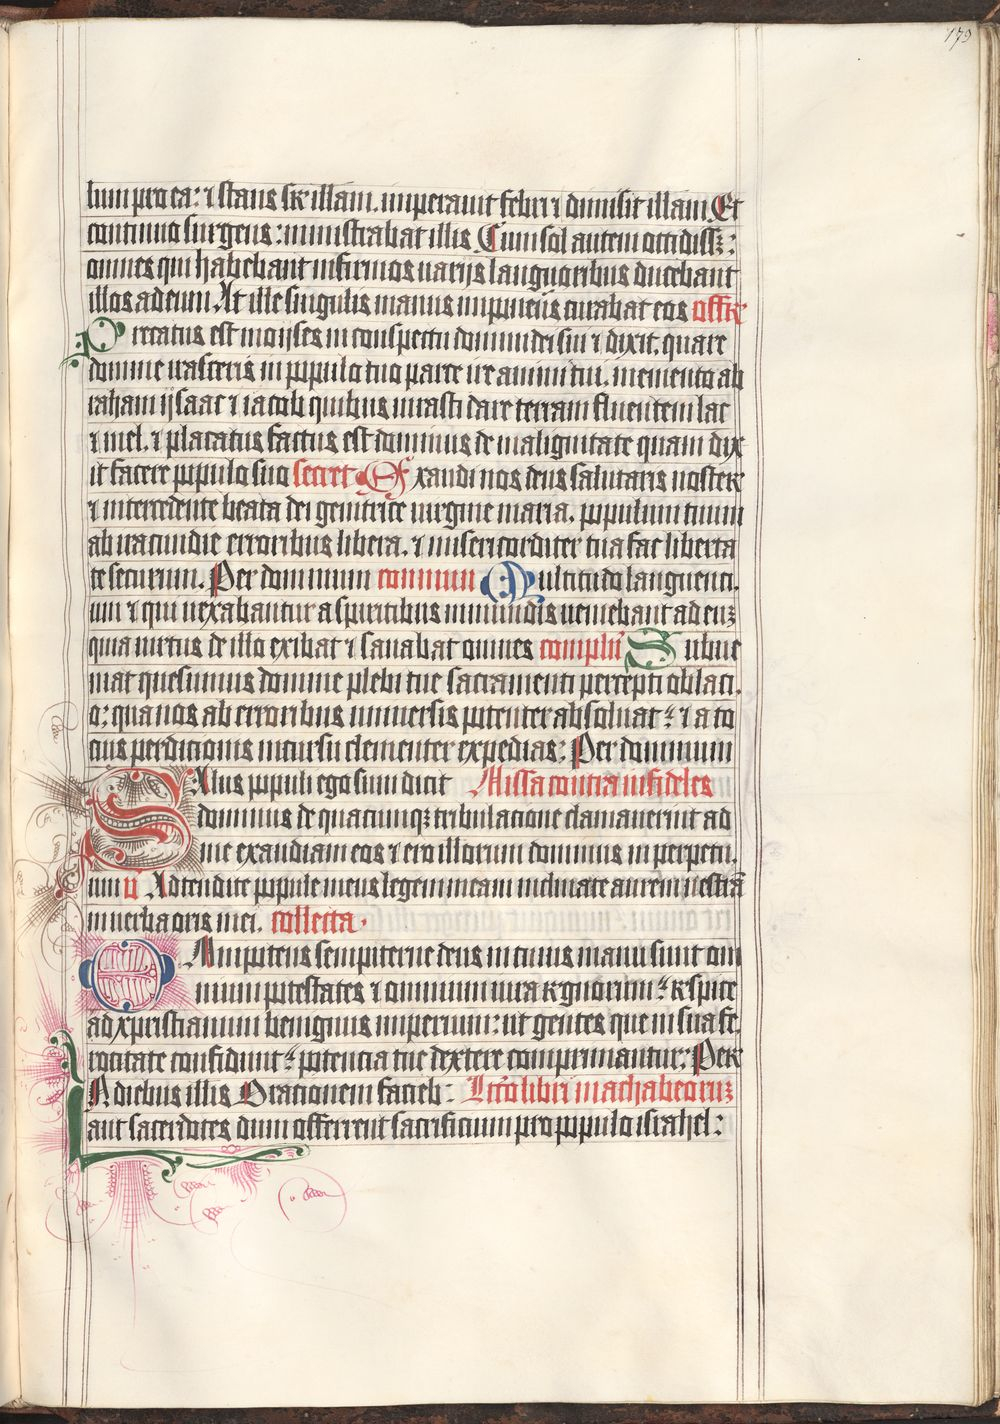 179
lum pro ea: ⁊ stans sr illam. imperauit febri ⁊ dimisit illam Et
continuo surgens: ministrabat illis Cum sol autem occidissꝫ:
omnes qui habebant infirmos uarijs languoribus ducebant
illos ad eum At ille singulis manus imponens curabat eos offr
Precatus est moyses in conspectu domini dei sui ⁊ dixit. quare
domine irasceris in populo tuo parce ire animi tui. memento ab
raham ysaac ⁊ iacob quibus iurasti dare terram fluentem lac
⁊ mel. ⁊ placatus factus est dominus de malignitate quam dix
it facere populo suo secret Exaudi nos deus salutaris noster
⁊ intercedente beata dei genitrice uirgine maria. populum tuum
ab iracundie erroribus libera. ⁊ misericorditer tua fac liberta
te securum. Per dominum commun Multitudo languenti
um ⁊ qui uexabantur a spiritibus inmundis ueniebant ad eūꝫ
quia uirtus de illo exibat ⁊ sanabat omnes complū Subue
niat quesumus domine plebi tue sacramenti percepti oblaci
o: qua nos ab erroribus uniuersis potenter absoluat: ⁊ a to
cius perdicionis incursu clementer expedias: Per dominum
SAlus populi ego sum dicit Missa contra infideles
dominus de quacumqꝫ tribulacione clamauerint ad
me exaudiam eos ⁊ ero illorum dominus in perpetu
um v̄ Adtendite popule meus legem meam inclinate aurem uestrā
in uerba oris mei. collecta
OMnipotens sempiterne deus in cuius manu sunt om
nium potestates ⁊ omnium iura regnorum: respice
ad xpristianum benignus imperium: ut gentes que in sua fe
rocitate confidunt: potencia tue dextere comprimantur: Per
IN diebus illis Oracionem facieb: Lcō libri machabeorūꝫ
ant sacerdotes dum offerrent sacrificium pro populo israhel: